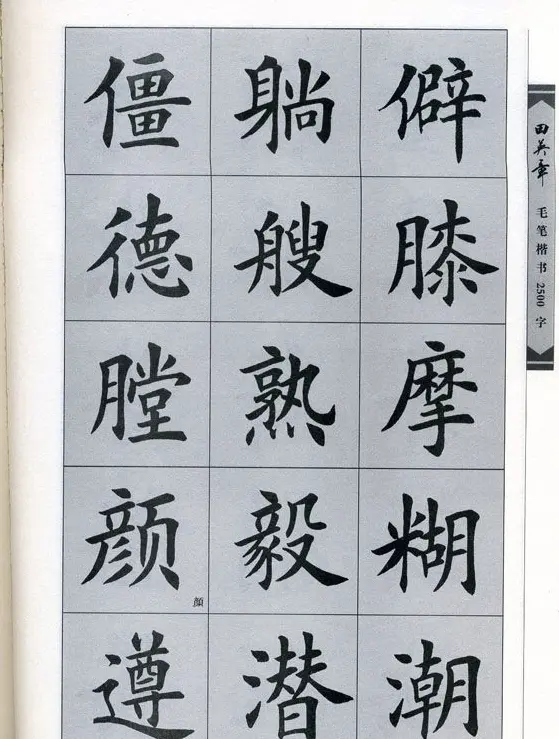 僵躺僻
德艘膝
膛熟摩
颜毅糊
顏
遵潜潮
田英章
毛笔楷书2500字